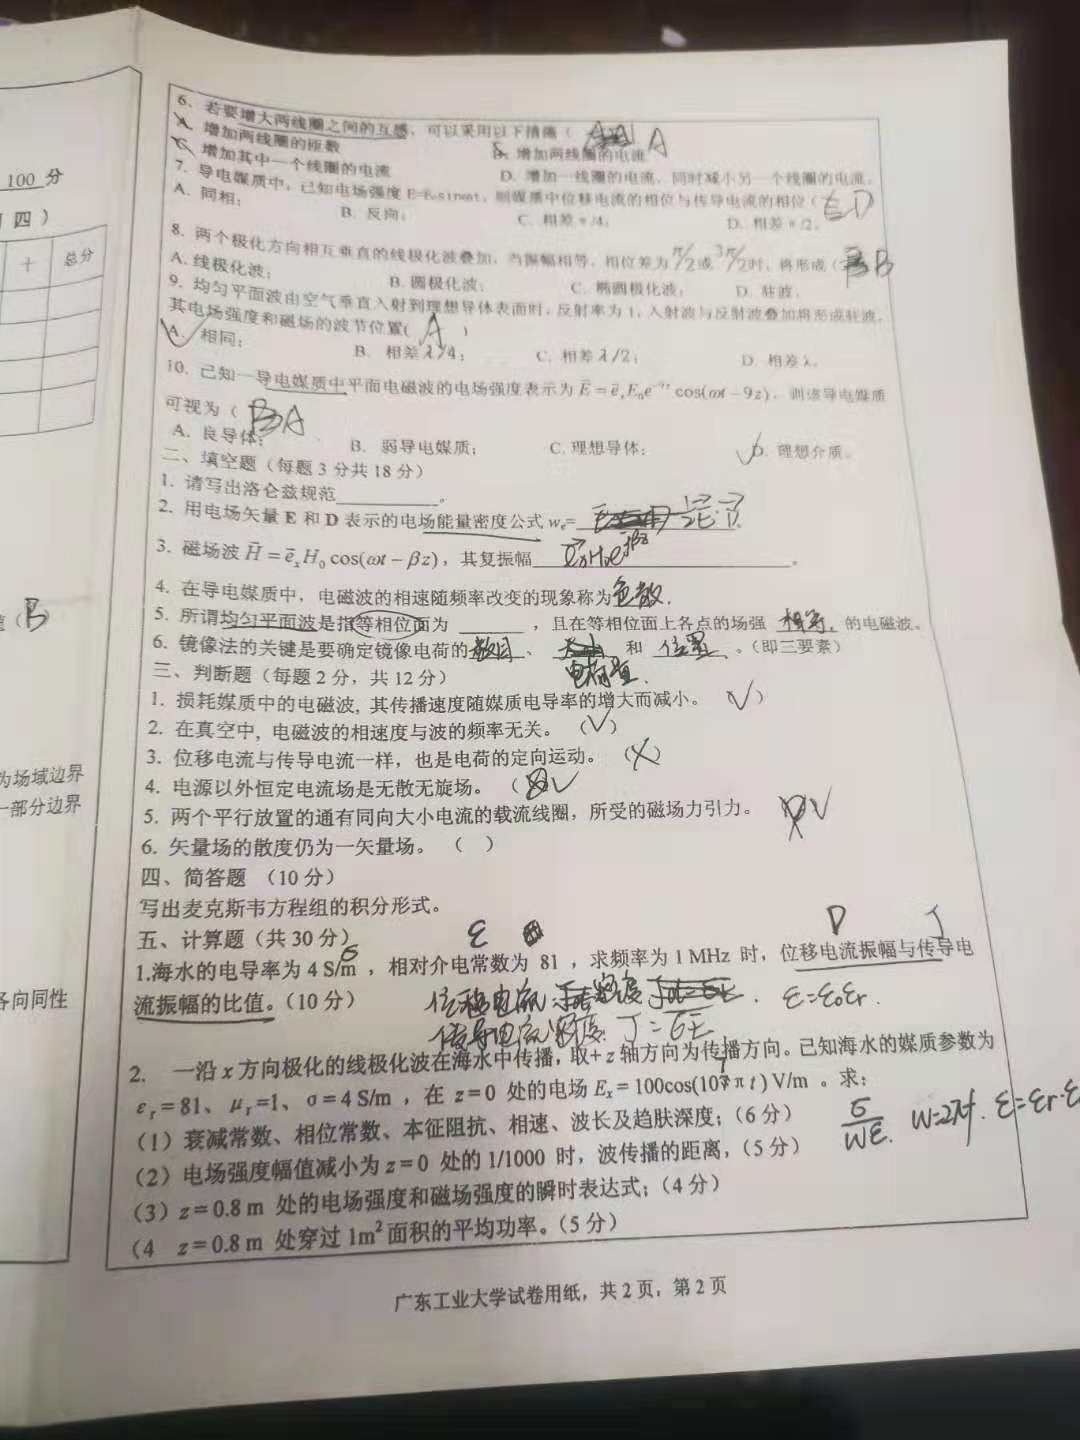 100 分
四）
十 总分
B
为场域边界
一部分边界
各向同性
6、若要增大两线圈之间的互感，可以采用以下措施（ A
A、增加两线圈的匝数 B、增加两线圈的电流
C、增加其中一个线圈的电流 D、增加一线圈的电流，同时减小另一个线圈的电流。
7、导电媒质中，已知电场强度 E=E₀sinωt，则媒质中位移电流的相位与传导电流的相位（ D
A、同相； B、反向； C、相差π/4； D、相差π/2。
8、两个极化方向相互垂直的线极化波叠加，当振幅相等，相位差为 π/2 或 3π/2 时，将形成（ B
A.线极化波； B.圆极化波； C、椭圆极化波； D、驻波。
9、均匀平面波由空气垂直入射到理想导体表面时，反射率为 1，入射波与反射波叠加将形成驻波，
其电场强度和磁场的波节位置( A )
A. 相同； B. 相差λ/4； C. 相差λ/2； D. 相差λ。
10、已知一导电媒质中平面电磁波的电场强度表示为 E = eₓE₀e⁻⁹ᶻ cos(ωt−9z)，则该导电媒质
可视为（ BA
A、良导体； B、弱导电媒质； C.理想导体； D. 理想介质。
二、填空题（每题 3 分共 18 分）
1、请写出洛仑兹规范________。
2、用电场矢量 E 和 D 表示的电场能量密度公式 wₑ= ½E·D
3、磁场波 H = eₓH₀ cos(ωt − βz)，其复振幅________。
4、在导电媒质中，电磁波的相速随频率改变的现象称为 色散 .
5、所谓均匀平面波是指等相位面为 ______ ，且在等相位面上各点的场强 相等. 的电磁波。
6、镜像法的关键是要确定镜像电荷的 数目 、 和 位置 。（即三要素）
电荷量.
三、判断题（每题 2 分，共 12 分）
1、损耗媒质中的电磁波, 其传播速度随媒质电导率的增大而减小。 √）
2、在真空中, 电磁波的相速度与波的频率无关。（√）
3、位移电流与传导电流一样，也是电荷的定向运动。（×）
4、电源以外恒定电流场是无散无旋场。（ √
5、两个平行放置的通有同向大小电流的载流线圈，所受的磁场力引力。 √
6、矢量场的散度仍为一矢量场。（ ）
四、简答题 （10 分）
写出麦克斯韦方程组的积分形式。
五、计算题（共 30 分）
σ ε D J
1.海水的电导率为 4 S/m ，相对介电常数为 81 ，求频率为 1 MHz 时，位移电流振幅与传导电
流振幅的比值。（10 分） 位移电流 密度 . ε=ε₀εr .
传导电流密度. J=σE
2. 一沿 x 方向极化的线极化波在海水中传播，取+ z 轴方向为传播方向。已知海水的媒质参数为
εr = 81、μr =1、σ = 4 S/m ，在 z = 0 处的电场 Eₓ = 100cos(10⁷π t ) V/m 。求：
（1）衰减常数、相位常数、本征阻抗、相速、波长及趋肤深度；（6 分）
σ/ωε. ω=2πf. ε=εr·ε
（2）电场强度幅值减小为 z = 0 处的 1/1000 时，波传播的距离，（5 分）
（3）z = 0.8 m 处的电场强度和磁场强度的瞬时表达式；（4 分）
（4 z = 0.8 m 处穿过 1m² 面积的平均功率。（5 分）
广东工业大学试卷用纸，共 2 页，第 2 页